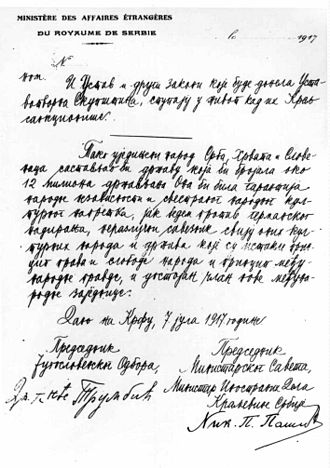 MINISTÈRE DES AFFAIRES ÉTRANGÈRES
DU ROYAUME DE SERBIE
№
1917
И Устав и други закони које буде донела Уста-
вотворна Скупштина, ступају у живот кад их Краљ
санкционише.
Тако уједињени народ Срба, Хрвата и Слове-
наца саставио би државу која би бројала око
12 милиона држављана. Она би била гаранција
народне независности и свестраног народног кул-
турног напретка, јак бедем против германског
надирања, неразлучни савезник свију оних кул-
турних народа и држава које су истакле прин-
цип права и слободе народа и принцип међу-
народне правде, и достојан члан нове међуна-
родне заједнице.
Дано на Крфу, 7 јула 1917 године
Председник
Југословенског Одбора,
Др. Анте Трумбић
Председник
Министарског Савета,
Министар Иностраних Дела
Краљевине Србије
Ник. П. Пашић